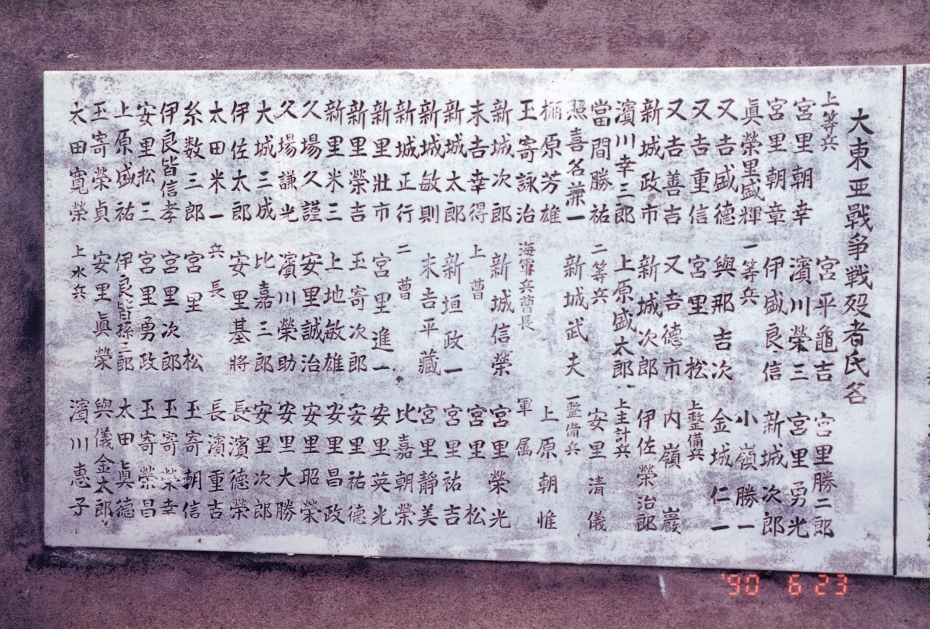 大東亜戰争戦殁者氏名
上等兵
宮里朝幸
宮里朝章
眞榮里盛輝
又吉盛德
又吉重信
又吉善吉
新城政市
濱川幸三郎
當間勝祐
照喜名兼一
棚原芳雄
玉寄詠治
新城次郎
末吉幸得
新城太郎
新城敏則
新城正行
新里壯市
新里榮吉
新里米三
久場久謹
久場謙光
大城三成
伊佐太郎
太田米一
糸数三郎
伊良皆信孝
安里松三
上原盛祐
玉寄榮貞
太田寛榮
宮平龜吉
濱川榮三
伊盛良信
一等兵
與那吉次
宮里松
又吉德市
新城次郎
上原盛太郎
二等兵
新城武夫
海軍兵曹長
新城信榮
上曹
新垣政一
末吉平藏
二曹
宮里進一
玉寄次郎
上地敏雄
安里誠治
濱川榮助
比嘉三郎
安里基將
兵長
宮里松
宮里次郎
宮里勇政
伊良皆孫三郎
安里眞榮
上水兵
宮里勝二郎
宮里勇光
新城次郎
小嶺勝一
金城仁一
上整備兵
内嶺巖
伊佐榮治郎
上主計兵
安里清儀
一整備兵
上原朝惟
軍属
宮里榮光
宮里松
宮里祐吉
宮里静美
比嘉朝榮
安里英光
安里祐德
安里昌政
安里昭榮
安里大勝
安里次郎
長濱德榮
長濱重吉
玉寄朝信
玉寄榮幸
玉寄榮昌
太田眞德
與儀金太郎
濱川恵子
'90 6 23